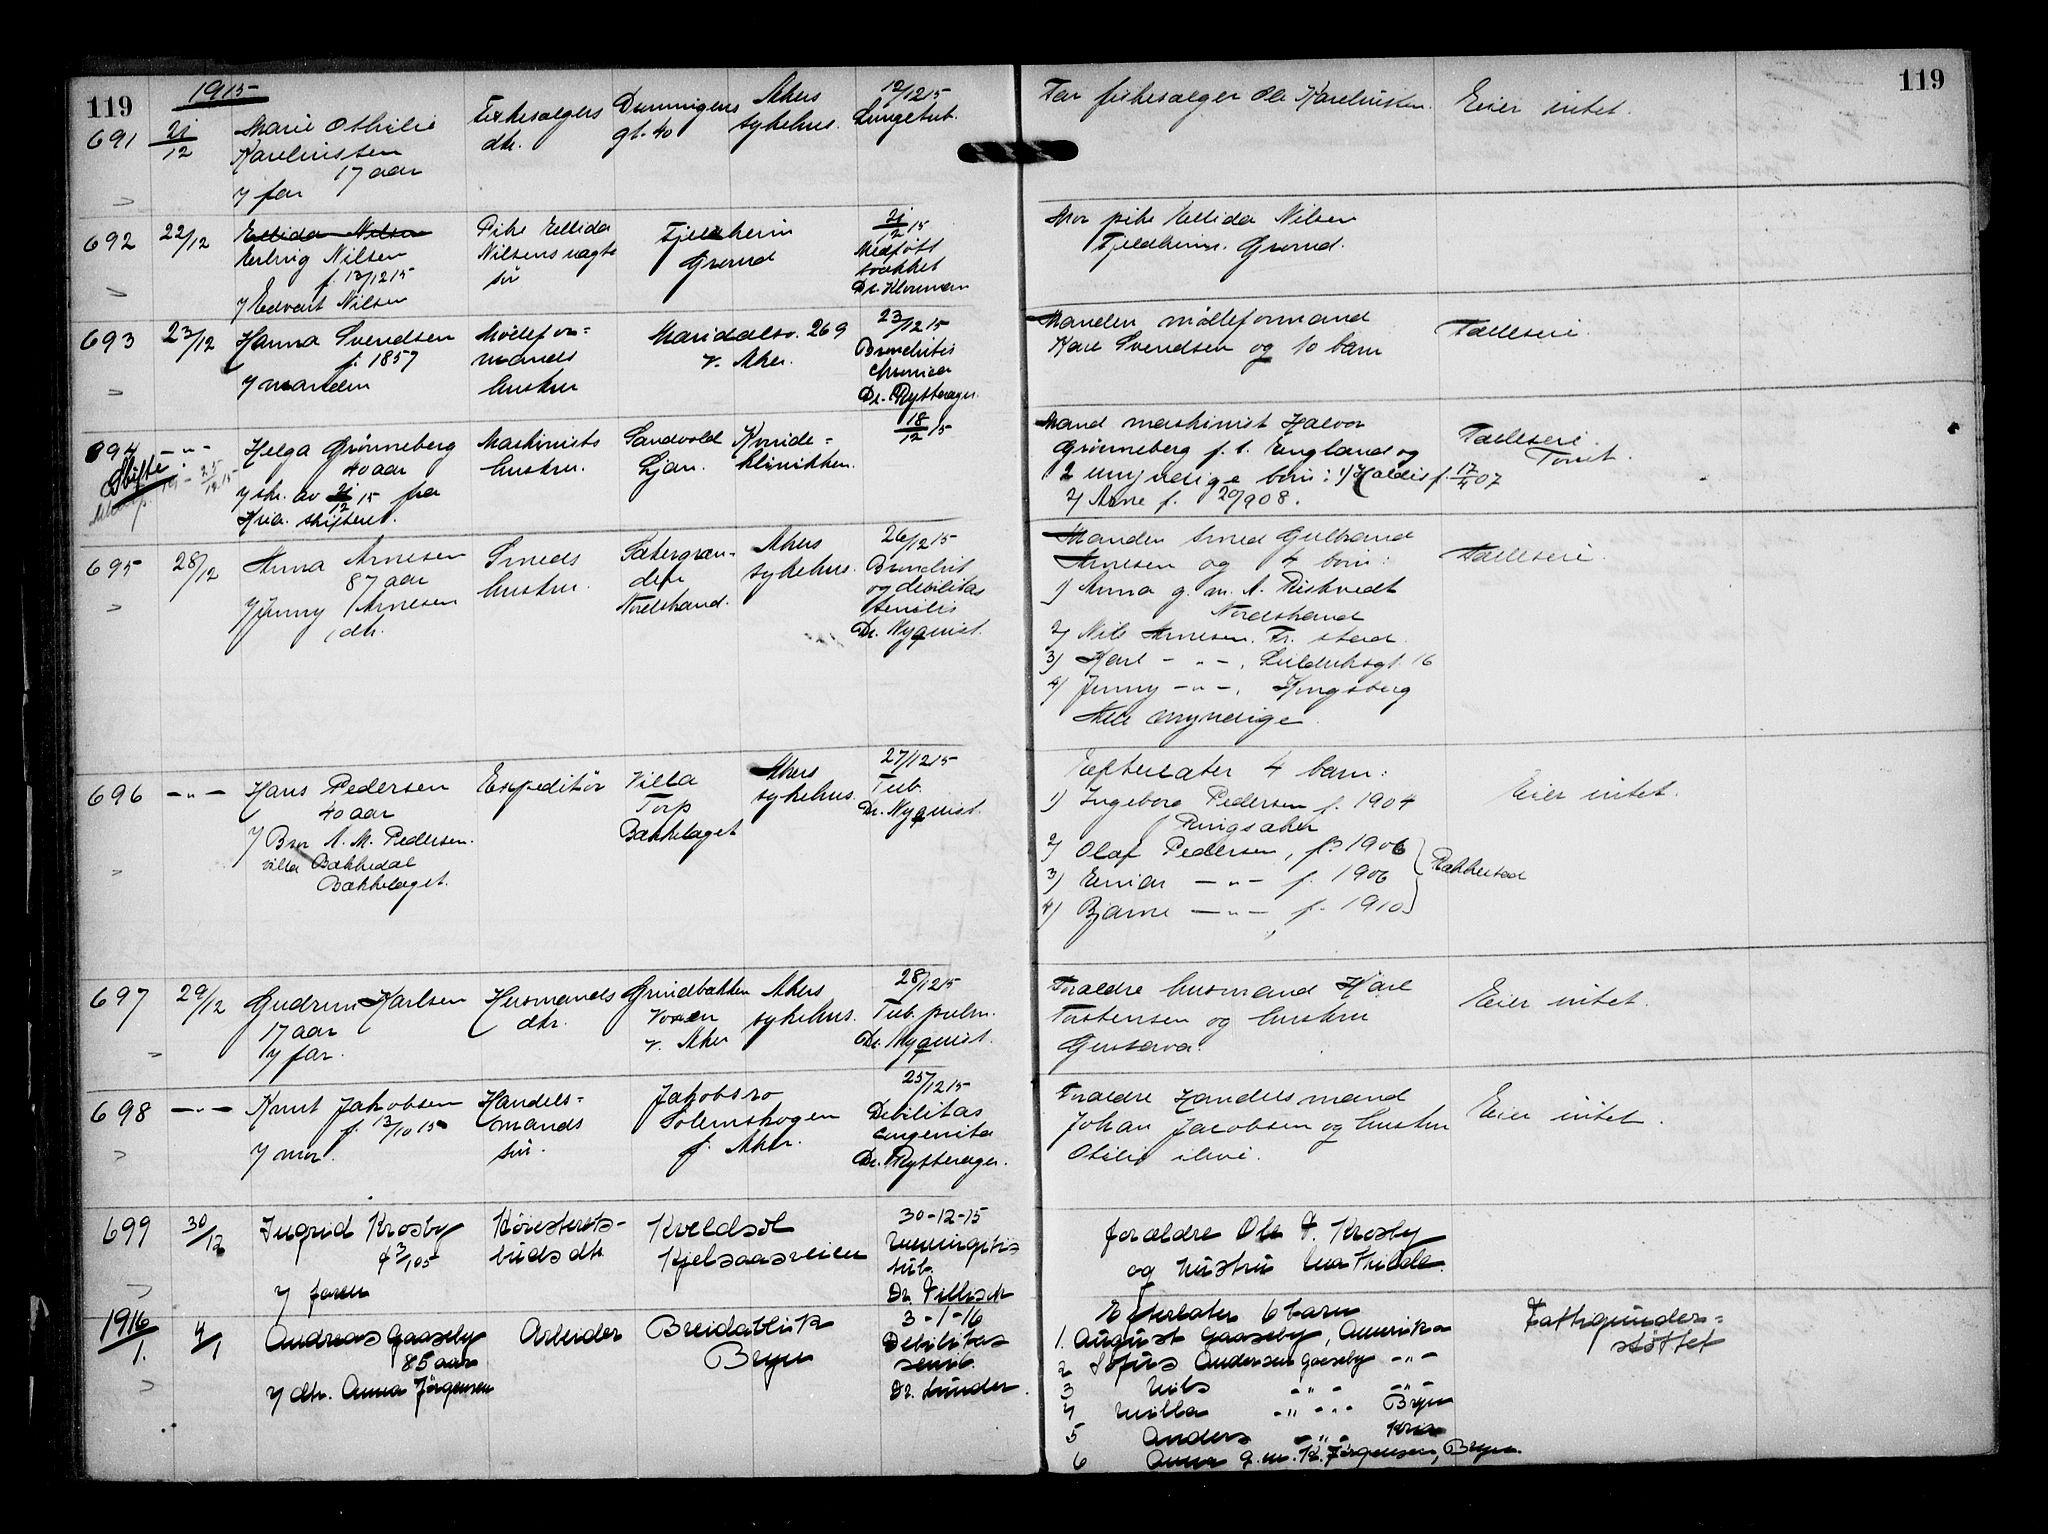 119
1915
119
691 21/12 Marie Othilie
Kareliussen
17 aar
y far
Fiskesælgers
dtr.
gt. 40
Akers
sykehus.
12/12 15
Lungetub.
Far fiskesælger Ole Kareliussen.
Eier intet.
692 22/12 Ellida Nilsen
Erling Nilsen
f. 13/12 15
y Edvart Nilsen
Pike Ellida
Nilsens uægte
søn
Fjeldheim
Grorud
21/12 15
Medfødt
svakhet
Dr. Klouman
Mor pike Ellida Nilsen
Fjeldheim. Grorud.
693 23/12 Hanna Svendsen
f. 1857
y manden
Møllefor-
mands
hustru
Maridalsv. 269
v. Aker.
23/12 15
Bronchitis
chronica
Dr. Rytterager.
Manden mølleformand
Karl Svendsen og 10 barn
Fælleseie.
694 -"- Helga Grønneberg
40 aar
y skr. av 21/12 15 fra
Kria. skifteret.
Skifte
Maskinists
hustru.
Sandvold
Ljan.
Kvinde-
klinikken.
18/12 15
Mand maskinist Halvor
Grønneberg f. t. England og
2 umyndige børn: 1) Haldis f. 17/4 07
2) Arne f. 20/9 08.
Fælleseie.
Tomt.
695 28/12 Anna Arnesen
87 aar
y Jenny Arnesen
dtr.
Smeds
hustru.
Sætergran-
den
Nordstrand.
Akers
sykehus.
26/12 15
Bronchit
og debilitas
senilis
Dr. Nyquist.
Manden smed Gulbrand
Arnesen og 4 børn:
1) Anna g. m. A. Riskvedt
Nordstrand
2) Nils Arnesen. Fr. stad.
3) Karl -"-, 16
4) Jenny -"-. Kongsberg
Alle myndige.
696 -"- Hans Pedersen
40 aar
y Bror A. M. Pedersen.
villa Bækkedal
Bækkelaget.
Expeditør
Villa
Torp
Bækkelaget
Akers
sykehus.
27/12 15
Tub.
Dr. Nyquist.
Efterlater 4 barn:
1) Ingeborg Pedersen f. 1904
Ringsaker
2) Olaf Pedersen, f. 1906
3) Einar -"- f. 1906
4) Bjarne -"- f. 1910
Eier intet.
697 29/12 Gudrun Karlsen
17 aar
y far.
Husmands
dtr.
Grindbakken
Voxen
v. Aker
Akers
sykehus.
28/12 15
Tub. pulm.
Dr. Nyquist.
Forældre husmand Karl
Torstensen og hustru
Gustava.
Eier intet.
698 -"- Knut Jakobsen
f. 13/10 15
y mor.
Handels-
mands
søn.
Jakobsro
Solemskogen
f. Aker.
25/12 15
Debilitas
congenita
Dr. Rytterager.
Forældre Handelsmand
Johan Jacobsen og hustru
Otilie
Eier intet.
699 30/12 Ingrid Krosby
f 3/1 05
y faren
Høiesterets-
buds dtr
Kveldsol
Kjelsaasveien
30-12-15
Meningitis
tub.
Forældre Ole J. Krosby
og hustru
1916
1. 4/1 Andreas Gaaseby
85 aar
y dtr. Anna Jørgensen
Arbeider
Breidablik
Bryn
3-1-16
Debilitas
senil.
Dr. Lunder.
Efterlater 6 barn
1. August Gaaseby, Amerika
2 Sofus Andersen Gaaseby -"-
3 Nils -"- -"-
4 Milla -"- Bryn
5 Anders -"- Kria
6 Anna g. m. K. Jørgensen, Bryn.
Fattigunder-
støttet